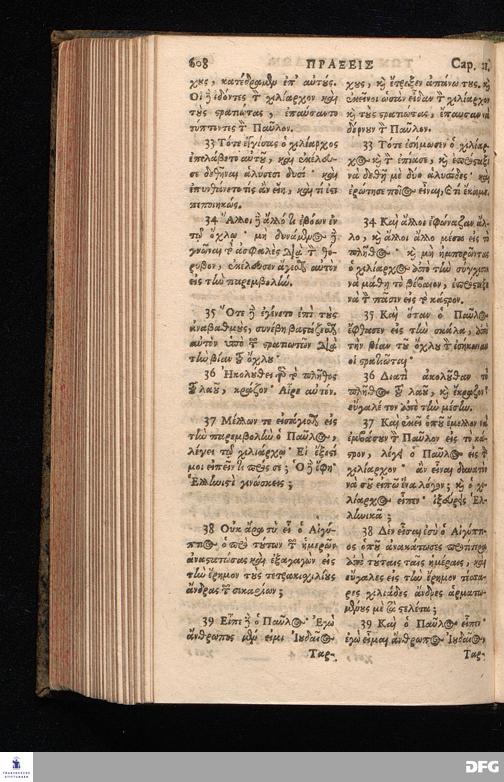 608 ΠΡΑΞΕΙΣ Cap. 21.
χυς, κατέδραμεν ἐπ' αὐτούς.
Οἱ δὲ ἰδόντες τὸν χιλίαρχον καὶ
τοὺς στρατιώτας, ἐπαύσαντο
τύπτοντες τὸν Παῦλον.
33 Τότε ἐγγίσας ὁ χιλίαρχος
ἐπελάβετο αὐτοῦ, καὶ ἐκέλευ-
σε δεθῆναι ἁλύσεσι δυσί· καὶ
ἐπυνθάνετο τίς ἂν εἴη, καὶ τί ἐστι
πεποιηκώς.
34 Ἄλλοι δὲ ἄλλο τι ἐβόων ἐν
τῷ ὄχλῳ· μὴ δυνάμενος δὲ
γνῶναι τὸ ἀσφαλὲς διὰ τὸν θό-
ρυβον, ἐκέλευσεν ἄγεσθαι αὐτὸν
εἰς τὴν παρεμβολήν.
35 Ὅτε δὲ ἐγένετο ἐπὶ τοὺς
ἀναβαθμοὺς, συνέβη βαστάζεσθαι
αὐτὸν ὑπὸ τῶν στρατιωτῶν διὰ
τὴν βίαν τοῦ ὄχλου·
36 Ἠκολούθει γὰρ τὸ πλῆθος
τοῦ λαοῦ, κρᾶζον· Αἶρε αὐτόν.
37 Μέλλων τε εἰσάγεσθαι εἰς
τὴν παρεμβολὴν ὁ Παῦλος,
λέγει τῷ χιλιάρχῳ· Εἰ ἔξεστί
μοι εἰπεῖν τι πρός σε; Ὁ δὲ ἔφη·
Ἑλληνιστὶ γινώσκεις;
38 Οὐκ ἄρα σὺ εἶ ὁ Αἰγύ-
πτιος ὁ πρὸ τούτων τῶν ἡμερῶν
ἀναστατώσας καὶ ἐξαγαγὼν εἰς
τὴν ἔρημον τοὺς τετρακισχιλίους
ἄνδρας τῶν σικαρίων;
39 Εἶπε δὲ ὁ Παῦλος· Ἐγὼ
ἄνθρωπος μέν εἰμι Ἰουδαῖος,
Ταρ-
χους, καὶ ἔτρεξεν ἀπάνω τους, καὶ
ἐκεῖνοι ὡσὰν εἶδαν τὸν χιλίαρχον
καὶ τοὺς στρατιώτας, ἔπαυσαν νὰ
δέρνουν τὸν Παῦλον.
33 Τότε ἐσήμωσεν ὁ χιλίαρ-
χος καὶ τὸν ἐπίασε, καὶ ἐπρόσταξε
νὰ δεθῇ μὲ δύο ἁλυσίδες· καὶ
ἐρώτησε ποῖος εἶναι, καὶ τί ἔκαμε.
34 Καὶ ἄλλοι ἐφώναζαν ἄλ-
λο, καὶ ἄλλοι ἄλλο μέσα εἰς τὸ
πλῆθος· καὶ μὴν ἠμπορῶντας
ὁ χιλίαρχος ἀπὸ τὴν σύγχυσι
νὰ μάθῃ τὸ βέβαιον, ἐπρόσταξε
νὰ τὸν πᾶσιν εἰς τὸ κάστρον.
35 Καὶ ὅταν ὁ Παῦλος
ἔφθασεν εἰς τὴν σκάλα, ἀπὸ
τὴν βίαν τοῦ ὄχλου τὸν ἐσήκωσαν
οἱ στρατιῶται·
36 Διατὶ ἀκολούθαν τὸ
πλῆθος τοῦ λαοῦ, καὶ ἔκραζον·
εὔγαλέ τον ἀπὸ τὴν μέσην.
37 Καὶ ἐκεῖ ὁποῦ ἔμελλον νὰ
ἐμβάσουν τὸν Παῦλον εἰς τὸ κά-
στρον, λέγει ὁ Παῦλος εἰς τὸν
χιλίαρχον· ἂν εἶναι δυνατὸν
νὰ σοῦ εἰπῶ ἕνα λόγον; καὶ ὁ χι-
λίαρχος εἶπεν· ἐξεύρεις Ἑλ-
ληνικά;
38 Δὲν εἶσαι ἐσὺ ὁ Αἰγύπτι-
ος ὁποῦ ἀνακάτωσες προτίτερα
ἀπὸ τούταις ταῖς ἡμέραις, καὶ
εὔγαλες εἰς τὴν ἔρημον τέσσα-
ρες χιλιάδες ἄνδρες ἁρματω-
μένους μὲ τὰ στιλέτα;
39 Καὶ ὁ Παῦλος εἶπεν·
ἐγὼ εἶμαι ἄνθρωπος Ἰουδαῖος,
Ταρ-
FRANCKESCHE
STIFTUNGEN
DFG